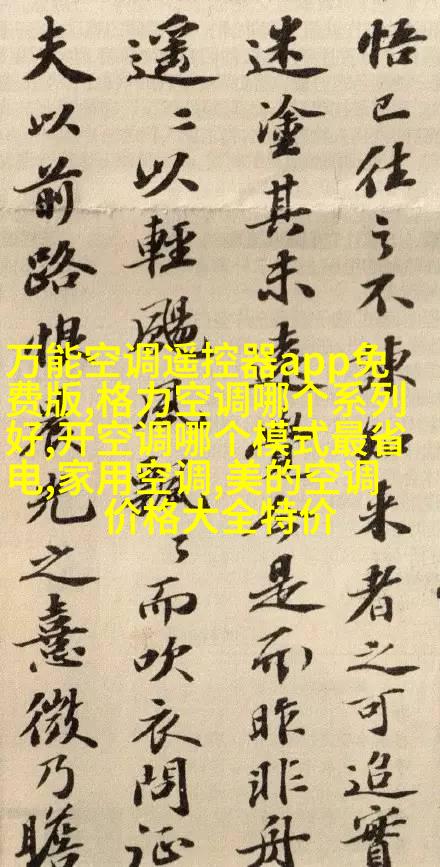 悟已往之不諫来者之可追實
迷塗其未遠是而昨非舟
遥〻以輕颺風飄〻而吹衣問征
夫以前路恨晨光之熹微乃瞻
万能空调遥控器app免
费版,格力空调哪个系列
好,开空调哪个模式最省
电,家用空调,美的空调
价格大全特价